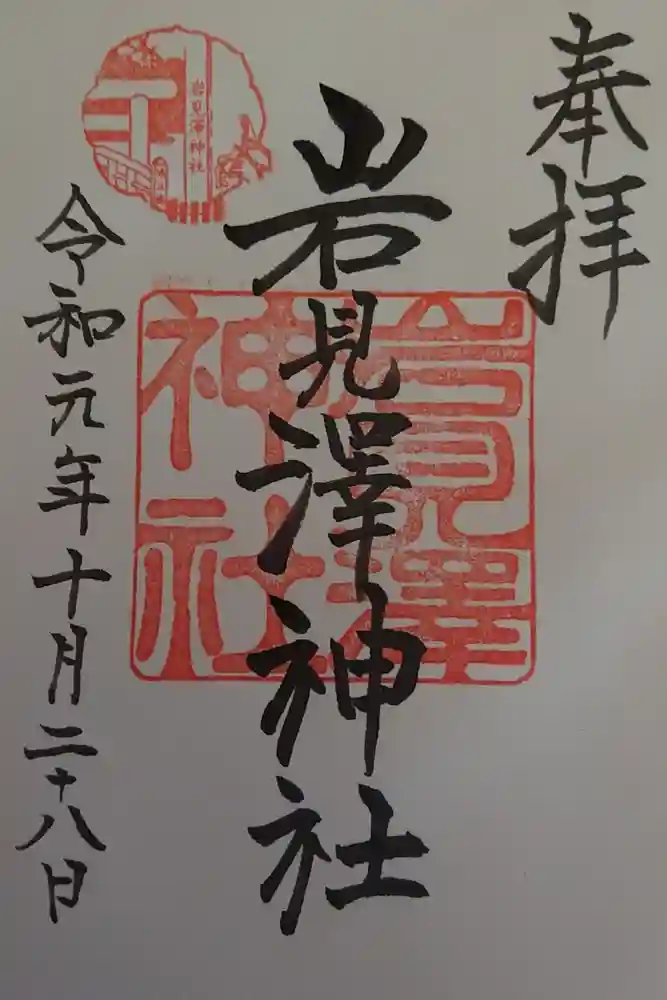 奉拝
岩見澤神社
岩見澤神社
岩見澤神社
令和元年十月二十八日